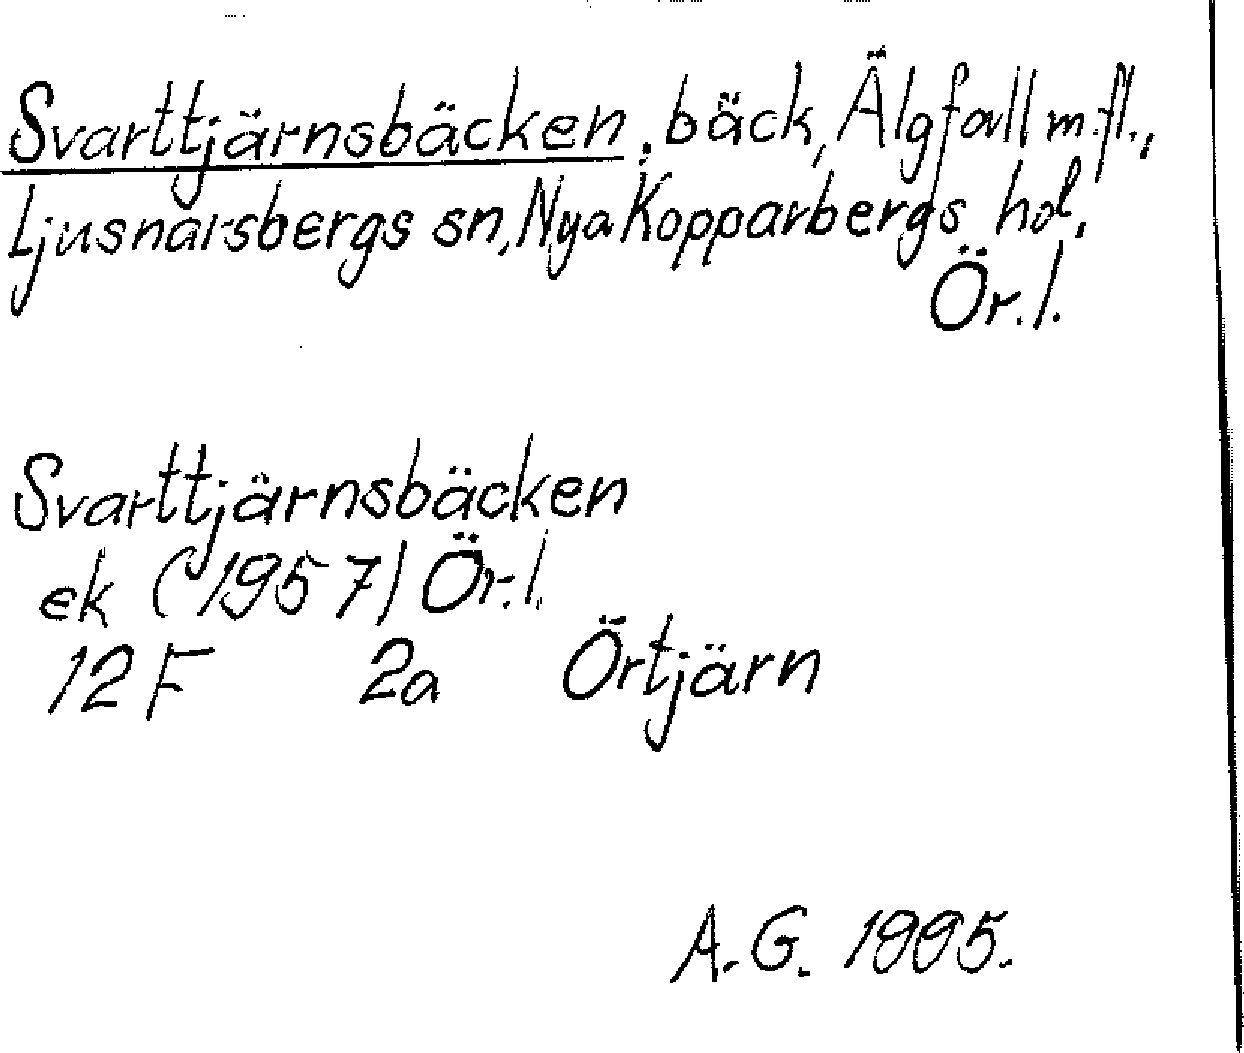 Svarttjärnsbäcken, bäck, Älgfall m.fl.,
Ljusnarsbergs sn, Nya Kopparbergs hd,
Ör.l.
Svarttjärnsbäcken
ek (1957) Ör.l.
12F 2a Örtjärn
A.G. 1995.